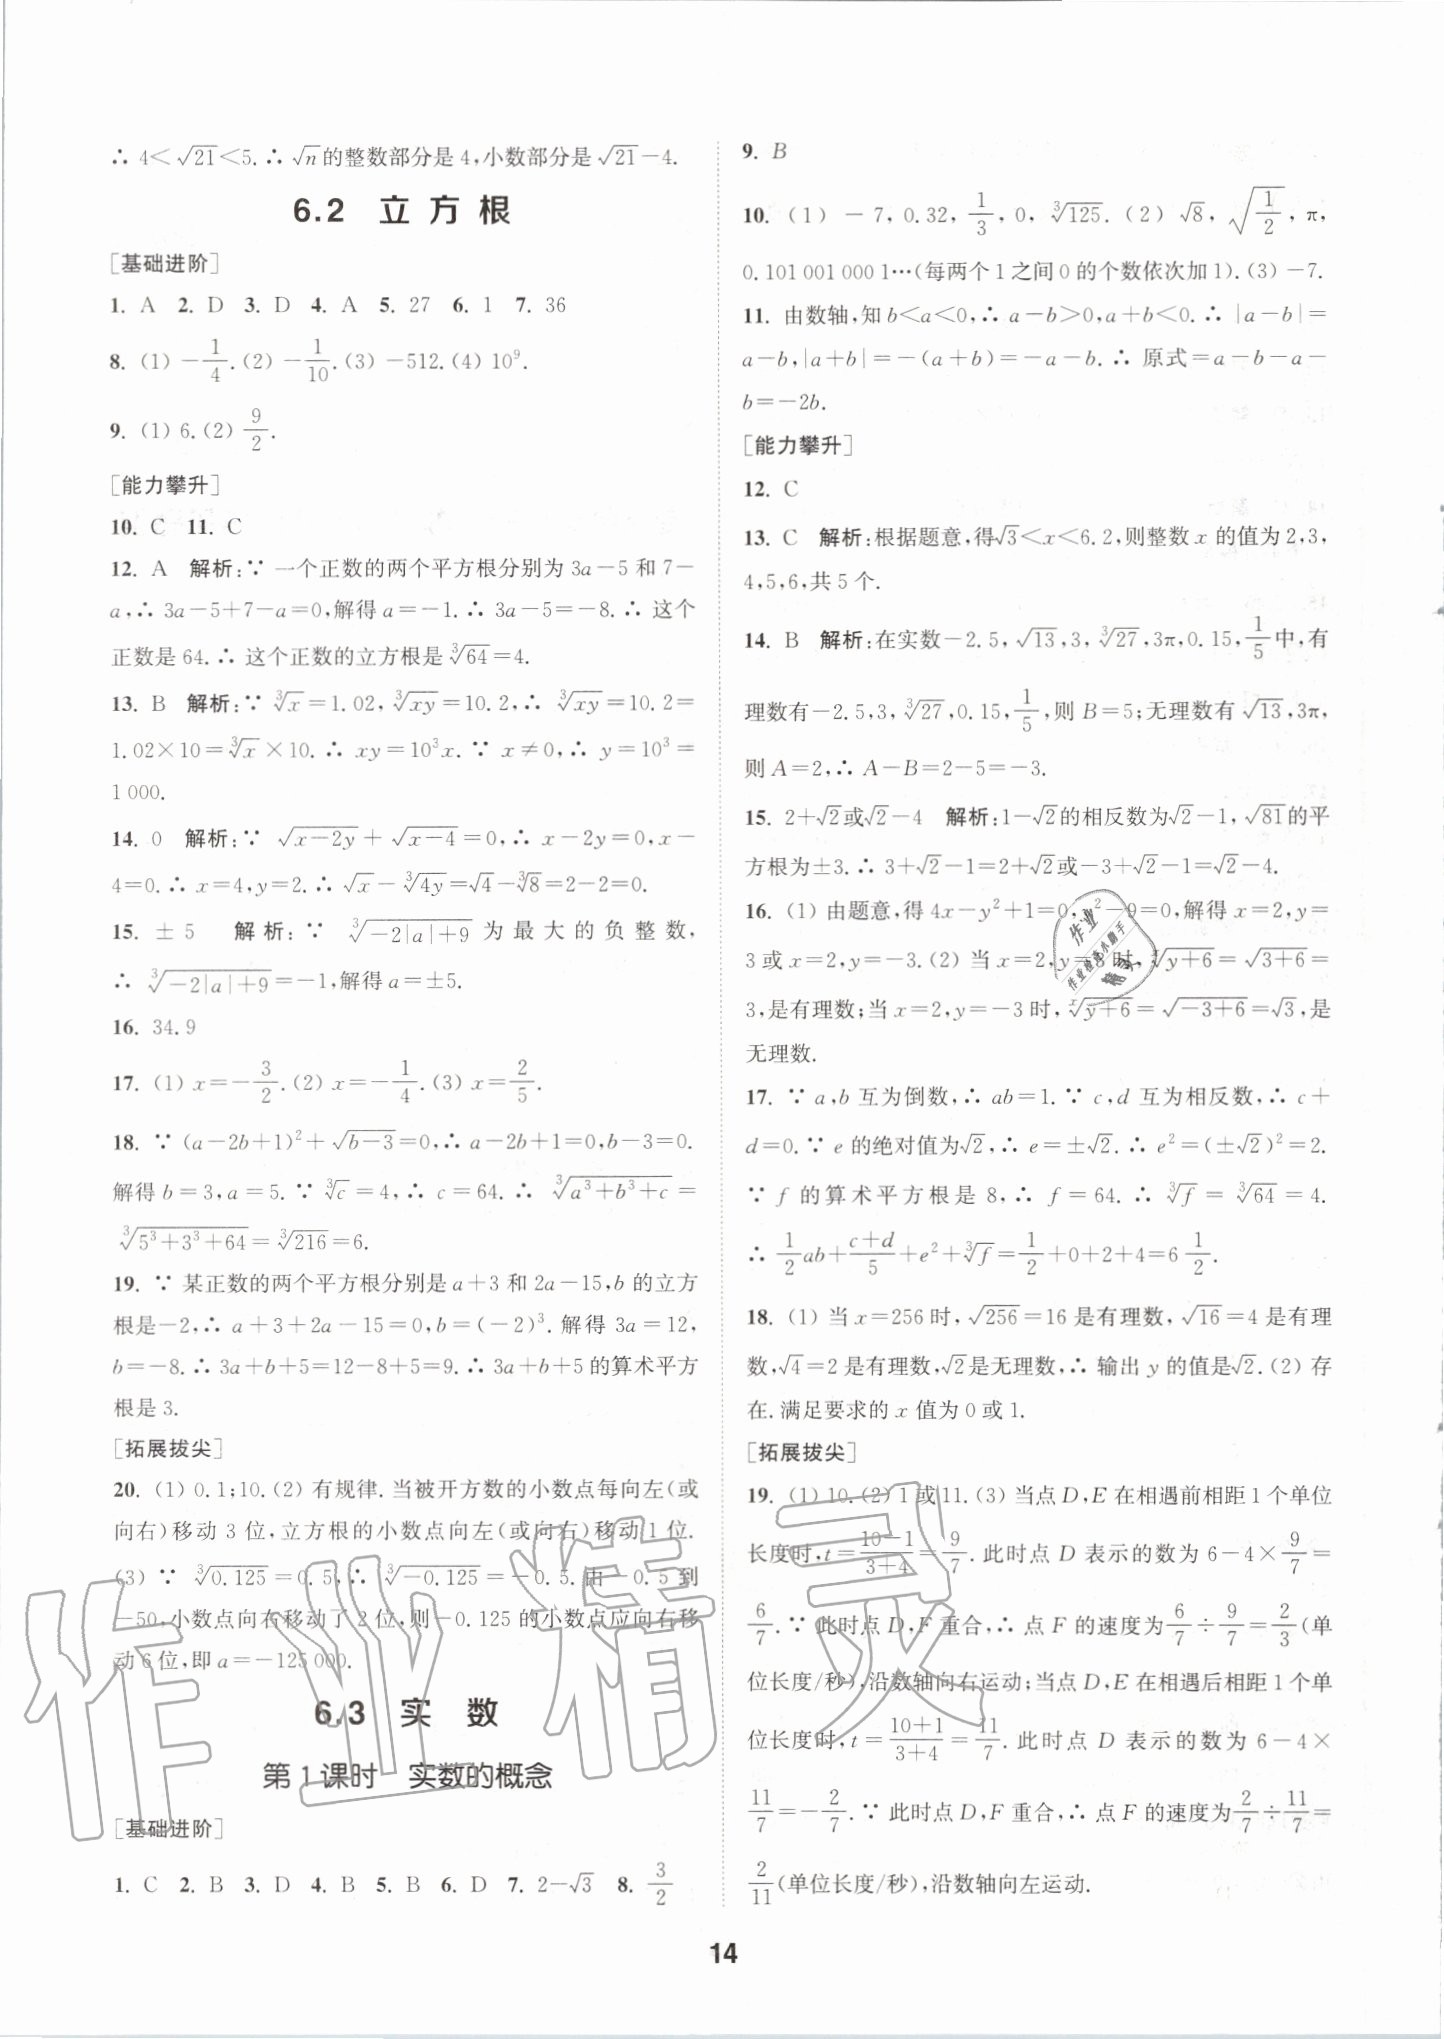 ∴ 4<√21<5. ∴ √n的整数部分是 4,小数部分是√21-4.
6.2 立方根
[基础进阶]
1. A 2. D 3. D 4. A 5. 27 6. 1 7. 36
8. (1) -1/4. (2) -1/10. (3) -512. (4) 10⁹.
9. (1) 6. (2) 9/2.
[能力攀升]
10. C 11. C
12. A 解析:∵ 一个正数的两个平方根分别为 3a-5 和 7-
a,∴ 3a-5+7-a=0,解得 a=-1. ∴ 3a-5=-8. ∴ 这个
正数是 64. ∴ 这个正数的立方根是∛64=4.
13. B 解析:∵ ∛x=1.02,∛(xy)=10.2,∴ ∛(xy)=10.2=
1.02×10=∛x×10. ∴ xy=10³x. ∵ x≠0,∴ y=10³=
1 000.
14. 0 解析:∵ √(x-2y)+√(x-4)=0,∴ x-2y=0,x-
4=0. ∴ x=4,y=2. ∴ √x-∛(4y)=√4-∛8=2-2=0.
15. ±5 解析:∵ ∛(-2|a|+9)为最大的负整数,
∴ ∛(-2|a|+9)=-1,解得 a=±5.
16. 34.9
17. (1) x=-3/2. (2) x=-1/4. (3) x=2/5.
18. ∵ (a-2b+1)²+√(b-3)=0,∴ a-2b+1=0,b-3=0.
解得 b=3,a=5. ∵ ∛c=4,∴ c=64. ∴ ∛(a³+b³+c)=
∛(5³+3³+64)=∛216=6.
19. ∵ 某正数的两个平方根分别是 a+3 和 2a-15,b 的立方
根是-2,∴ a+3+2a-15=0,b=(-2)³. 解得 3a=12,
b=-8. ∴ 3a+b+5=12-8+5=9. ∴ 3a+b+5 的算术平方
根是 3.
[拓展拔尖]
20. (1) 0.1;10. (2) 有规律. 当被开方数的小数点每向左(或
向右)移动 3 位,立方根的小数点向左(或向右)移动 1 位.
(3) ∵ ∛0.125=0.5,∴ ∛-0.125=-0.5. 由-0.5 到
-50,小数点向右移动了 2 位,则-0.125 的小数点应向右移
动 6 位,即 a=-125 000.
6.3 实数
第 1 课时 实数的概念
[基础进阶]
1. C 2. B 3. D 4. B 5. B 6. D 7. 2-√3 8. 3/2
9. B
10. (1) -7,0.32,1/3,0,∛125. (2) √8,√(1/2),π,
0.101 001 000 1…(每两个 1 之间 0 的个数依次加 1). (3) -7.
11. 由数轴,知 b<a<0,∴ a-b>0,a+b<0. ∴ |a-b|=
a-b,|a+b|=-(a+b)=-a-b. ∴ 原式=a-b-a-
b=-2b.
[能力攀升]
12. C
13. C 解析:根据题意,得√3<x<6.2,则整数 x 的值为 2,3,
4,5,6,共 5 个.
14. B 解析:在实数-2.5,√13,3,∛27,3π,0.15,1/5中,有
理数有-2.5,3,∛27,0.15,1/5,则 B=5;无理数有√13,3π,
则 A=2,∴ A-B=2-5=-3.
15. 2+√2或√2-4 解析:1-√2的相反数为√2-1,√81的平
方根为±3. ∴ 3+√2-1=2+√2或-3+√2-1=√2-4.
16. (1) 由题意,得 4x-y²+1=0,y²-9=0,解得 x=2,y=
3 或 x=2,y=-3. (2) 当 x=2,y=3 时,ˣ√(y+6)=√(3+6)=
3,是有理数;当 x=2,y=-3 时,ˣ√(y+6)=√(-3+6)=√3,是
无理数.
17. ∵ a,b 互为倒数,∴ ab=1. ∵ c,d 互为相反数,∴ c+
d=0. ∵ e 的绝对值为√2,∴ e=±√2. ∴ e²=(±√2)²=2.
∵ f 的算术平方根是 8,∴ f=64. ∴ ∛f=∛64=4.
∴ 1/2ab+(c+d)/5+e²+∛f=1/2+0+2+4=6 1/2.
18. (1) 当 x=256 时,√256=16 是有理数,√16=4 是有理
数,√4=2 是有理数,√2是无理数,∴ 输出 y 的值是√2. (2) 存
在. 满足要求的 x 值为 0 或 1.
[拓展拔尖]
19. (1) 10. (2) 1 或 11. (3) 当点 D,E 在相遇前相距 1 个单位
长度时,t=(10-1)/(3+4)=9/7. 此时点 D 表示的数为 6-4×9/7=
6/7. ∵ 此时点 D,F 重合,∴ 点 F 的速度为6/7÷9/7=2/3(单
位长度/秒),沿数轴向右运动;当点 D,E 在相遇后相距 1 个单
位长度时,t=(10+1)/(3+4)=11/7. 此时点 D 表示的数为 6-4×
11/7=-2/7. ∵ 此时点 D,F 重合,∴ 点 F 的速度为2/7÷11/7=
2/11(单位长度/秒),沿数轴向左运动.
14
作业精灵
作业
作业检查小助手
精灵